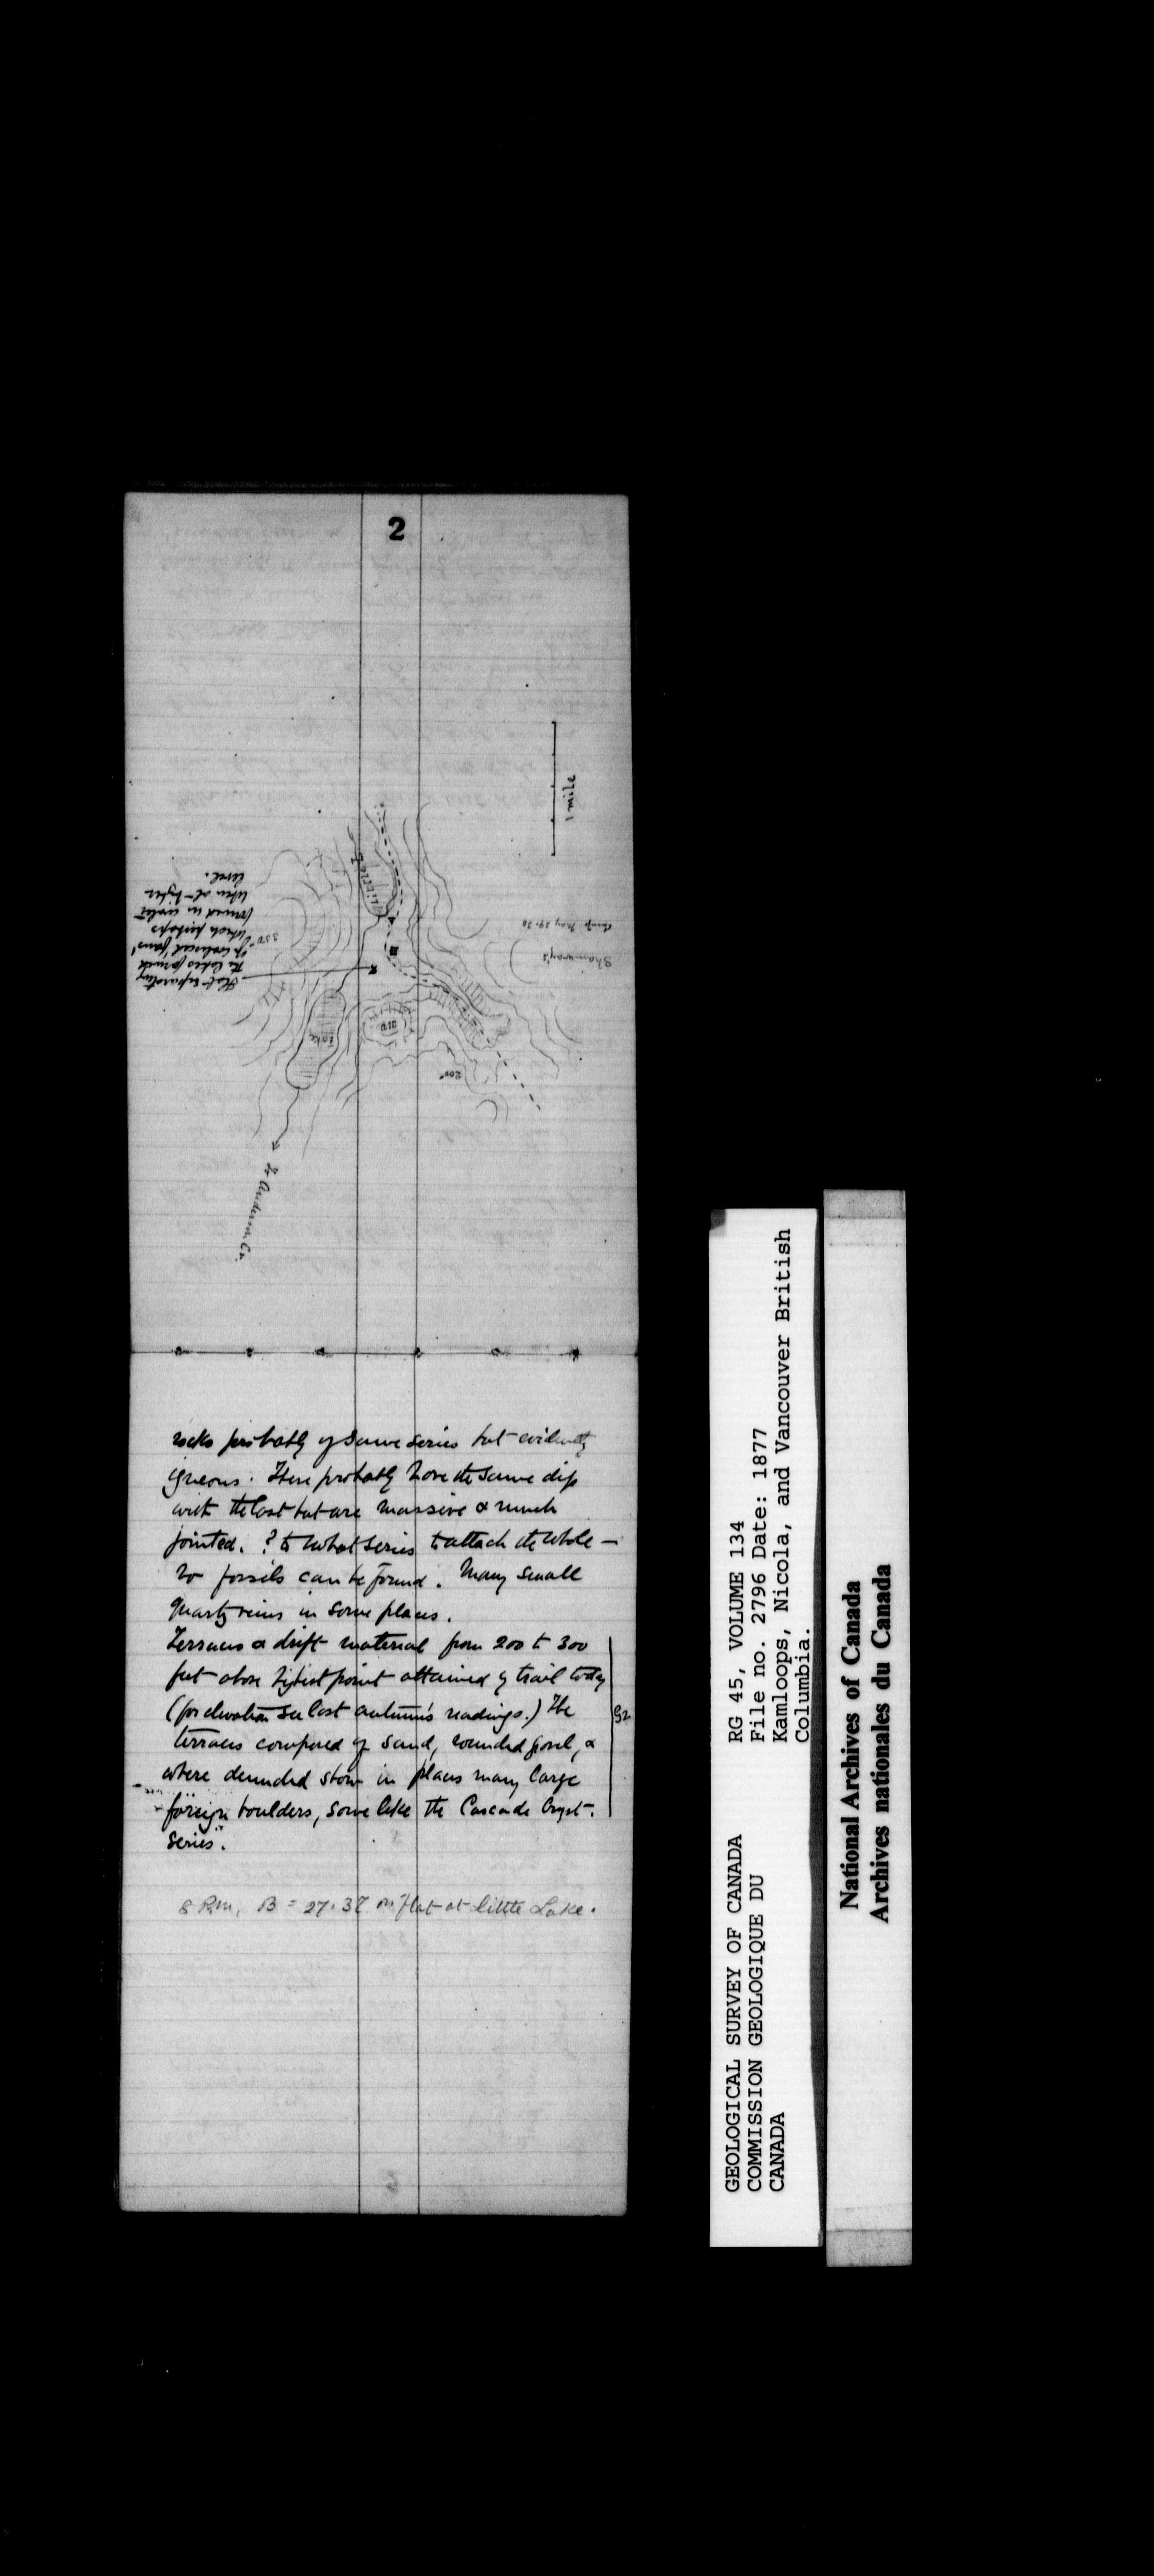 2
1 mile
Little L
Camp May 29-30
Shumway's
350'
Flat separating
the lakes formed
of coalesced fans,
which perhaps
formed in
when at higher
level.
old
Lake
200'
To Anderson Cr.
rocks probably of same series but evidently
igneous. These probably have the same dip
with the last but are massive & much
jointed. ? to what series to attach the whole —
no fossils can be found. Many small
quartz veins in some places.
Terraces & drift material from 200 to 300
feet above highest point attained by trail today
(for elevation see last autumn's readings.) The
terraces composed of sand, rounded gravel, &
where denuded show in places many large
foreign boulders, some like the Cascade Cryst.
series".
8 P.M. B = 27.37 on flat at little Lake.
GEOLOGICAL SURVEY OF CANADA
COMMISSION GEOLOGIQUE DU
CANADA
RG 45, VOLUME 134
File no. 2796 Date: 1877
Kamloops, Nicola, and Vancouver British
Columbia.
National Archives of Canada
Archives nationales du Canada